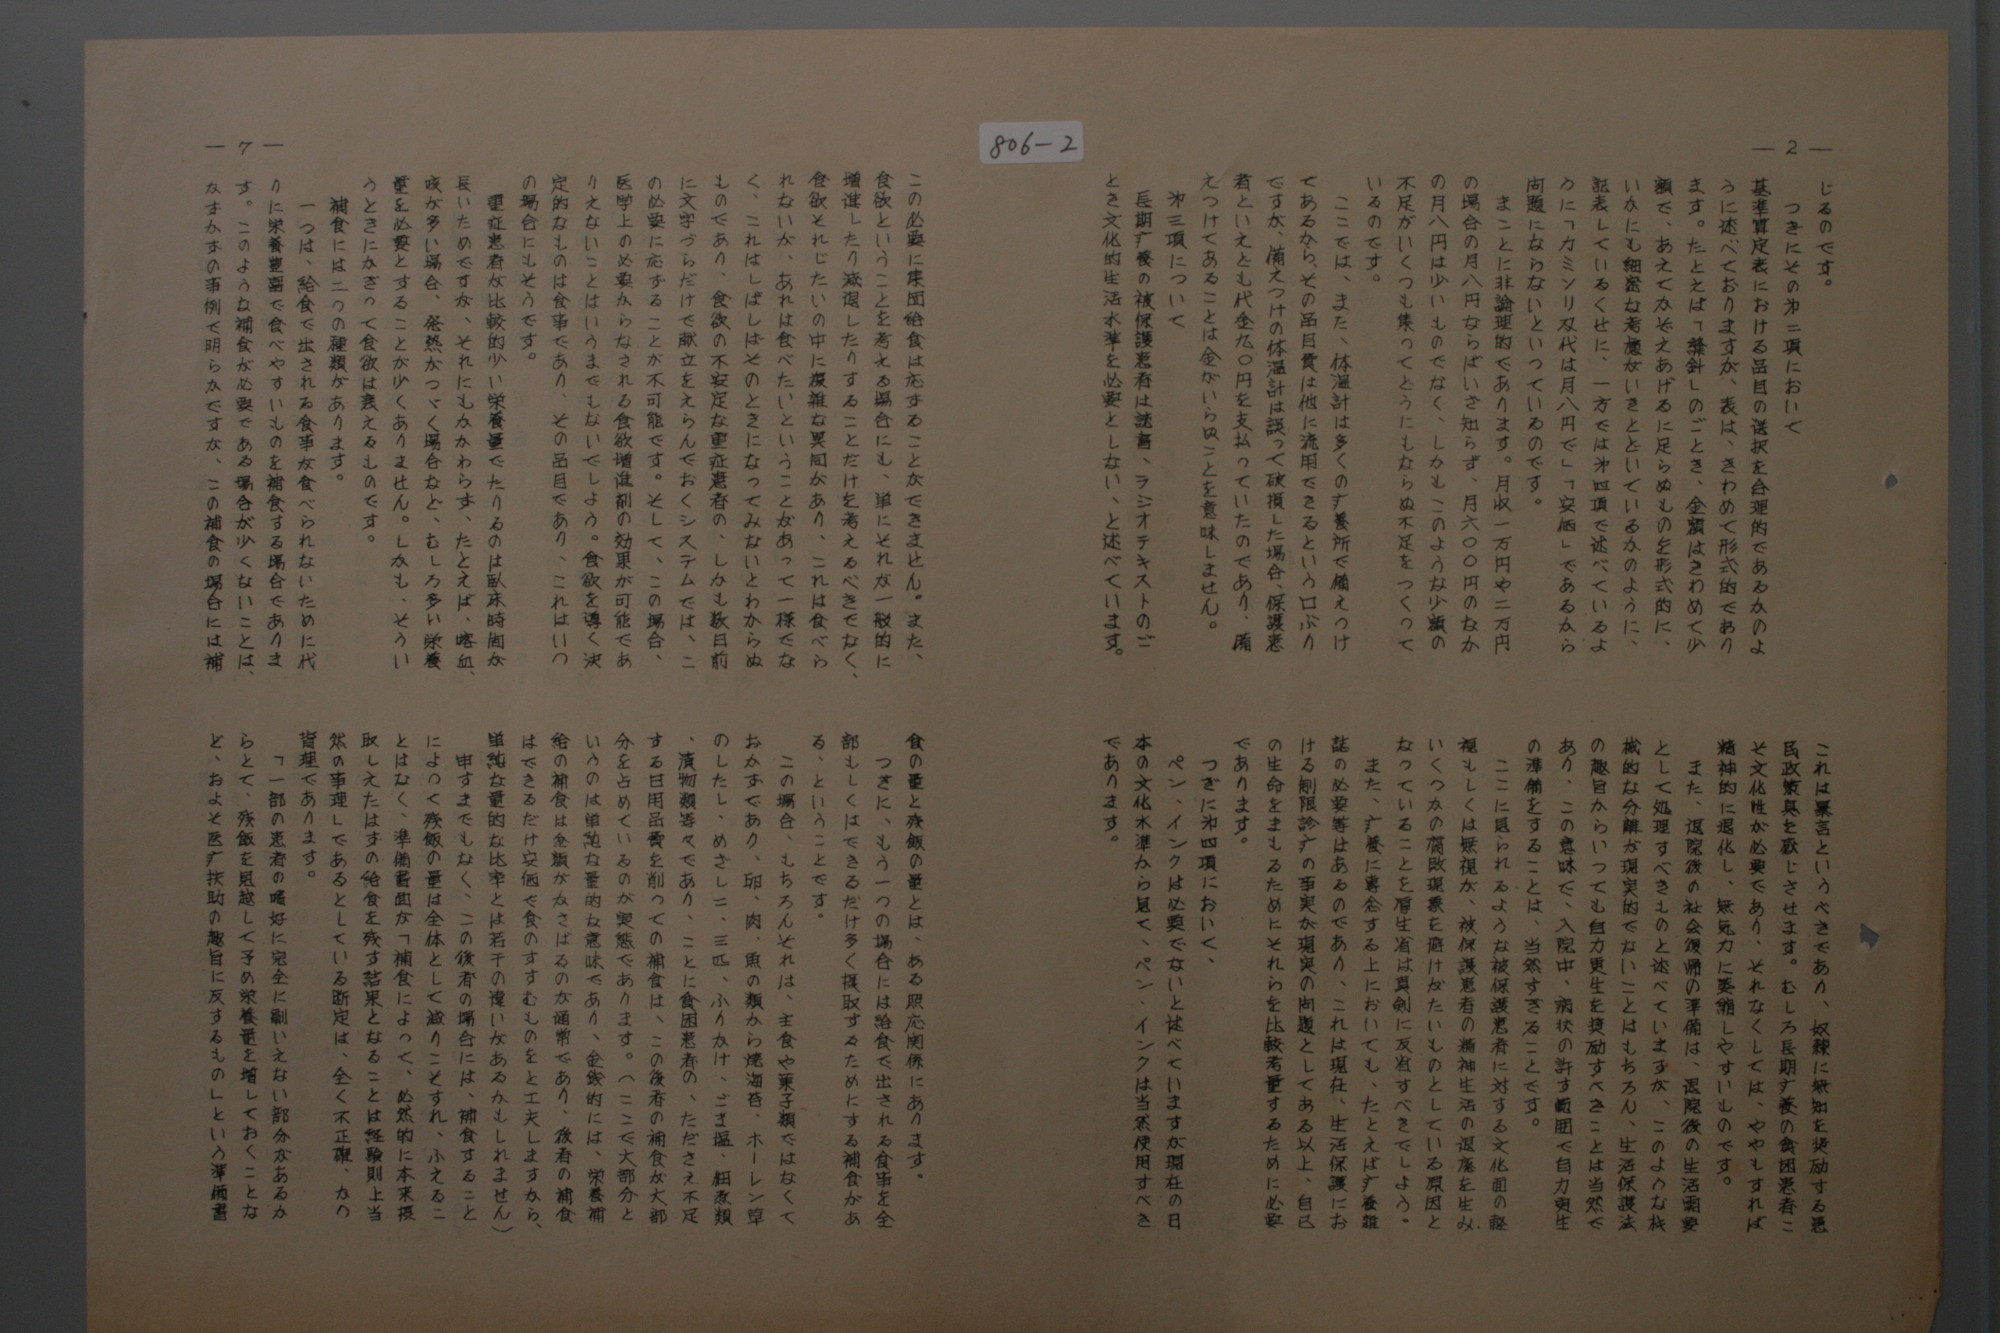 806-2
— 2 —
じるのです。
つぎにその㐧二項において
基準算定表における品目の選択を合理的であるかのよ
うに述べておりますが、表は、きわめて形式的であり
ます。たとえば「縫針」のごとき、金額はきわめて少
額で、あえてかぞえあげるに足らぬものを形式的に、
いかにも細密な考慮がいきとどいているかのように、
記表しているくせに、一方では㐧四項で述べているよ
うに「カミソリ刄代は月八円で」「安価」であるから
问題にならないといっているのです。
まことに非論理的であります。月収一万円や二万円
の場合の月八円ならばいざ知らず、月六〇〇円のなか
の月八円は少いものでなく、しかもこのような少額の
不足がいくつも集ってどうにもならぬ不足をつくって
いるのです。
ここでは、また、体温計は多くの疒養所で備えつけ
てあるから、その品目費は他に流用できるという口ぶり
ですが、備えつけの体温計は誤って破損した場合、保護患
者といえども代金九〇円を支払っていたのであり、備
えつけてあることは金がいらぬことを意味しません。
㐧三項について
長期疒養の被保護患者は読書、ラジオテキストのご
とき文化的生活水準を必要としない、と述べています。
これは暴言というべきであり、奴隷に無知を奨励する悪
民政策真を歎じさせます。むしろ長期疒養の貪困患者こ
そ文化性が必要であり、それなくしては、ややもすれば
精神的に退化し、無気力に萎縮しやすいものです。
また、退院後の社会復帰の準備は、退院後の生活需要
として処理すべきものと述べていますが、このような机
械的な分離が現実的でないことはもちろん、生活保護法
の趣旨からいっても自力更生を奨励すべきことは当然で
あり、この意味で、入院中、病状の許す範囲で自力更生
の準備をすることは、当然すぎることです。
ここに見られるような被保護患者に対する文化面の軽
視もしくは無視が、被保護患者の精神生活の退廃を生み、
いくつかの腐敗現象を避けがたいものとしている原因と
なっていることを厚生省は真剣に反省すべきでしよう。
また、疒養に専念する上においても、たとえば疒養雑
誌の必要等はあるのであり、これは現在、生活保護にお
ける制限診疒の事実が現実の问題としてある以上、自己
の生命をまもるためにそれらを比較考量するために必要
であります。
つぎに㐧四項において、
ペン、インクは必要でないと述べていますが現在の日
本の文化水準から見て、ペン、インクは当然使用すべき
であります。
— 7 —
この必要に集団給食は応ずることができません。また、
食欲ということを考える場合にも、単にそれが一般的に
増進したり減退したりすることだけを考えるべきでなく、
食欲それじたいの中に複雑な異同があり、これは食べら
れないが、あれは食べたいということがあって一様でな
く、これはしばしばそのときになってみないとわからぬ
ものであり、食欲の不安定な重症患者の、しかも数日前
に文字づらだけで献立をえらんでおくシステムでは、こ
のめ要に応ずることが不可能です。そして、この場合、
医学上の必要からなされる食欲増進剤の効果が可能であ
りえないことはいうまでもないでしよう。食欲を導く決
定的なものは食事であり、その品目であり、これはいつ
の場合にもそうです。
重症患者が比較的少い栄養量でたりるのは臥床時间が
長いためですが、それにもかかわらず、たとえば、喀血、
咳が多い場合、発熱がつづく場合など、むしろ多い栄養
量を必要とすることが少くありません。しかも、そうい
うときにかぎって食欲は衰えるものです。
補食には二つの種類があります。
一つは、給食で出される食事が食べられないために代
りに栄養豊富で食べやすいものを補食する場合でありま
す。このような補食が必要である場合が少くないことは、
なすかずの事例で明らかですが、この補食の場合には補
食の量と残飯の量とは、ある照応関係にあります。
つぎに、もう一つの場合には給食で出される食事を全
部もしくはできるだけ多く摂取するためにする補食があ
る、ということです。
この場合、もちろんそれは、主食や菓子類ではなくて
おかずであり、卵、肉、魚の類から焼海苔、ホーレン草
のしたし、めざし二、三匹、ふりかけ、ごま塩、佃煮類
、漬物類等々であり、ことに貪困患者の、たださえ不足
する日用品費を削っての補食は、この後者の補食が大部
分を占めているのが実態であります。（ここで大部分と
いうのは単純な量的な意味であり、金銭的には、栄養補
給の補食は金額がかさばるのが通常であり、後者の補食
はできるだけ安価で食のすすむものをと工夫しますから、
単純な量的な比率とは若干の違いがあるかもしれません）
申すまでもなく、この後者の場合には、補食すること
によって残飯の量は全体として減りこそすれ、ふえるこ
とはなく、準備書面が「補食によって、必然的に本来摂
取しえたはずの給食を残す結果となることは経験則上当
然の事理」であるとしている断定は、全く不正確、かつ
背理であります。
「一部の患者の嗜好に完全に副いえない部分があるか
らとて、残飯を見越して予め栄養量を増しておくことな
ど、およそ医疒扶助の趣旨に反するもの」という準備書